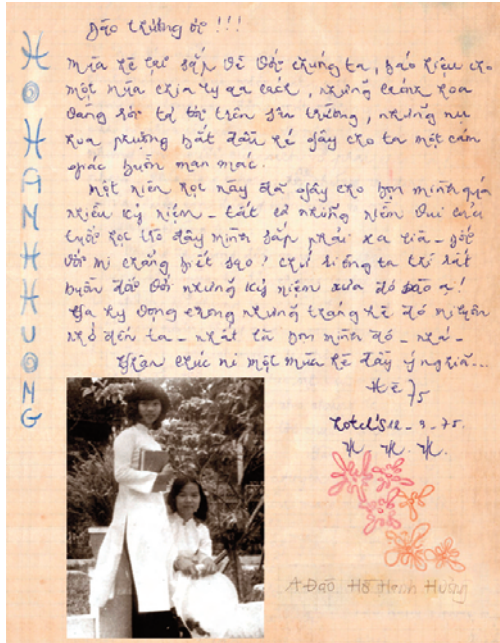 HOHANHHUONG
Đào thương ơi !!!
Mùa hè lại sắp về với chúng ta, báo hiệu cho
một mùa chia ly xa cách, những cánh hoa
đang rơi tả tơi trên sân trường, những nụ
hoa phượng bắt đầu hé gây cho ta một cảm
giác buồn man mác.
Một niên học này đã gây cho bọn mình quá
nhiều kỷ niệm - tất cả những niềm vui của
tuổi học trò đây mình sắp phải xa lìa - đối
với mi chẳng biết sao? chứ riêng ta thì rất
buồn đối với những kỷ niệm xưa đó Đào ạ!
Hy vọng trong những tháng hè đó mi luôn
nhớ đến ta - nhất là bọn mình đó - nhá -
Thân chúc mi một mùa hè đầy ý nghĩa...
Hè 75
- 3 - 75.
H. H. H.
A Đào Hồ Hạnh Hường